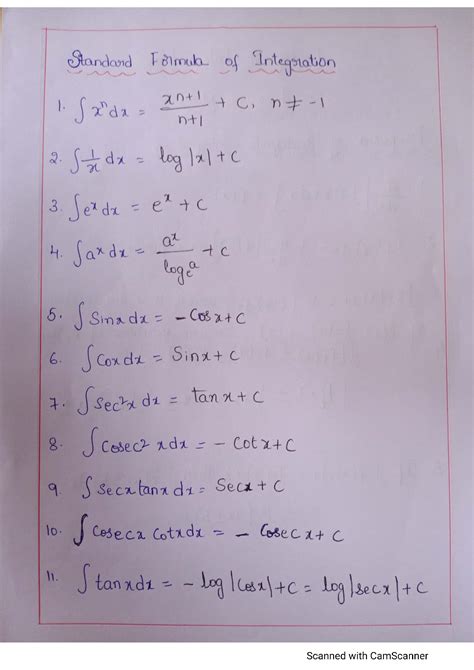 Standard Formula of Integration
1. ∫xⁿdx = xn+1/n+1 + C, n ≠ -1
2. ∫1/x dx = log|x| + C
3. ∫eˣdx = eˣ + C
4. ∫aˣdx = aˣ/logₑa + C
5. ∫Sinxdx = -Cosx+C
6. ∫Coxdx = Sinx+C
7. ∫Sec²x dx = tanx+C
8. ∫Cosec² xdx = -Cotx+C
9. ∫Secxtanxdx = Secx+C
10. ∫Cosecx Cotxdx = - Cosecx+C
11. ∫tanxdx = -log|Cosx|+C = log|secx|+C
Scanned with CamScanner